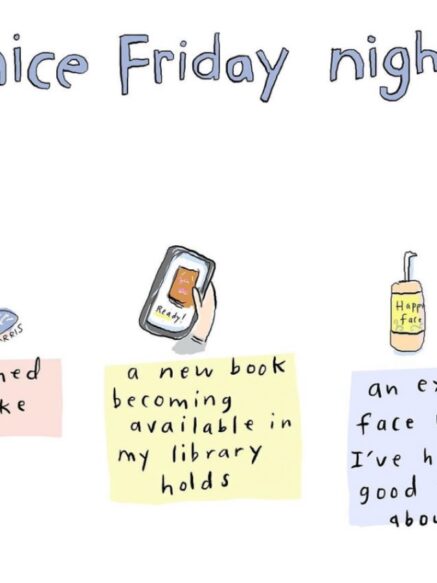 nice Friday nigh
Ready!
Happy
face
ned
ke
a new book
becoming
available in
my library
holds
an ex
face
I've h
good
abou